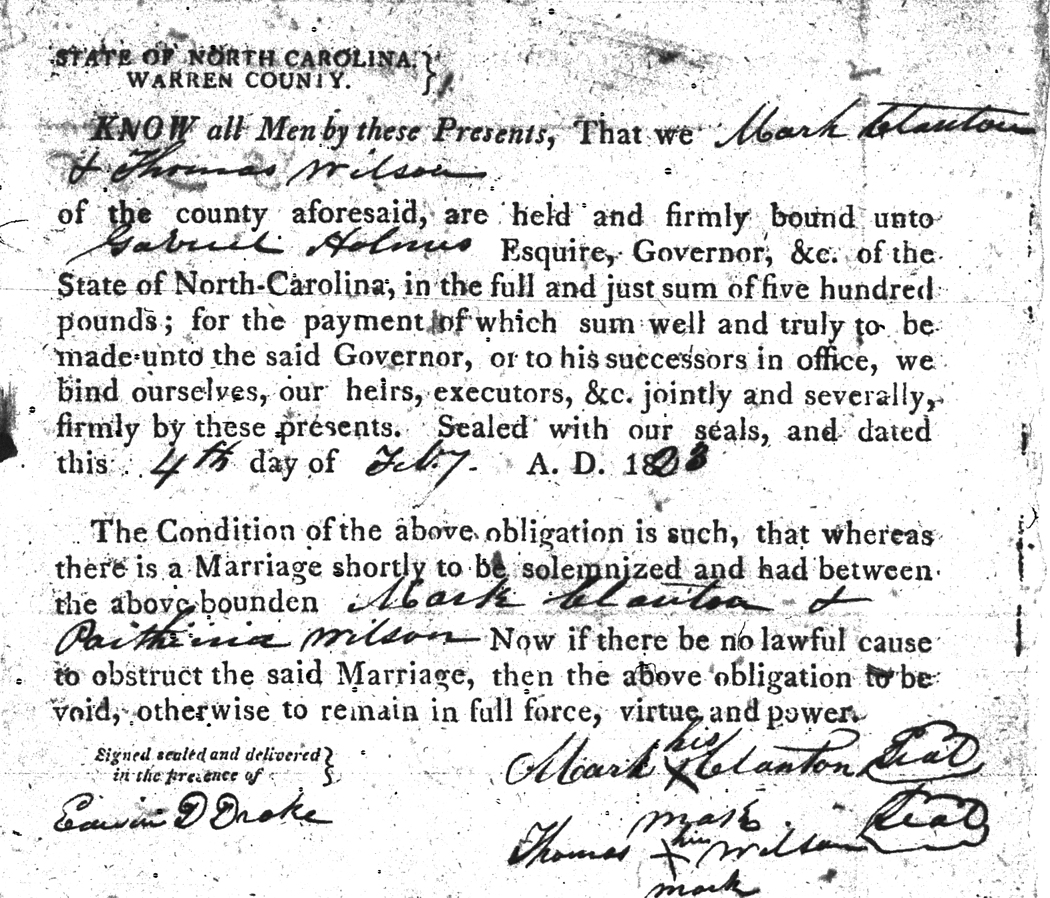 STATE OF NORTH CAROLINA, }
WARREN COUNTY. }
KNOW all Men by these Presents, That we Mark Clanton
& Thomas Wilson
of the county aforesaid, are held and firmly bound unto
Gabriel Holmes Esquire, Governor, &c. of the
State of North-Carolina, in the full and just sum of five hundred
pounds; for the payment of which sum well and truly to be
made unto the said Governor, or to his successors in office, we
bind ourselves, our heirs, executors, &c. jointly and severally,
firmly by these presents. Sealed with our seals, and dated
this 4th day of Feby. A. D. 1823
The Condition of the above obligation is such, that whereas
there is a Marriage shortly to be solemnized and had between
the above bounden Mark Clanton &
Wilson Now if there be no lawful cause
to obstruct the said Marriage, then the above obligation to be
void, otherwise to remain in full force, virtue and power.
Signed sealed and delivered }
in the presence of }
Edwin D Drake
his
Mark X Clanton Seal
mark
his
Thomas X Wilson Seal
mark